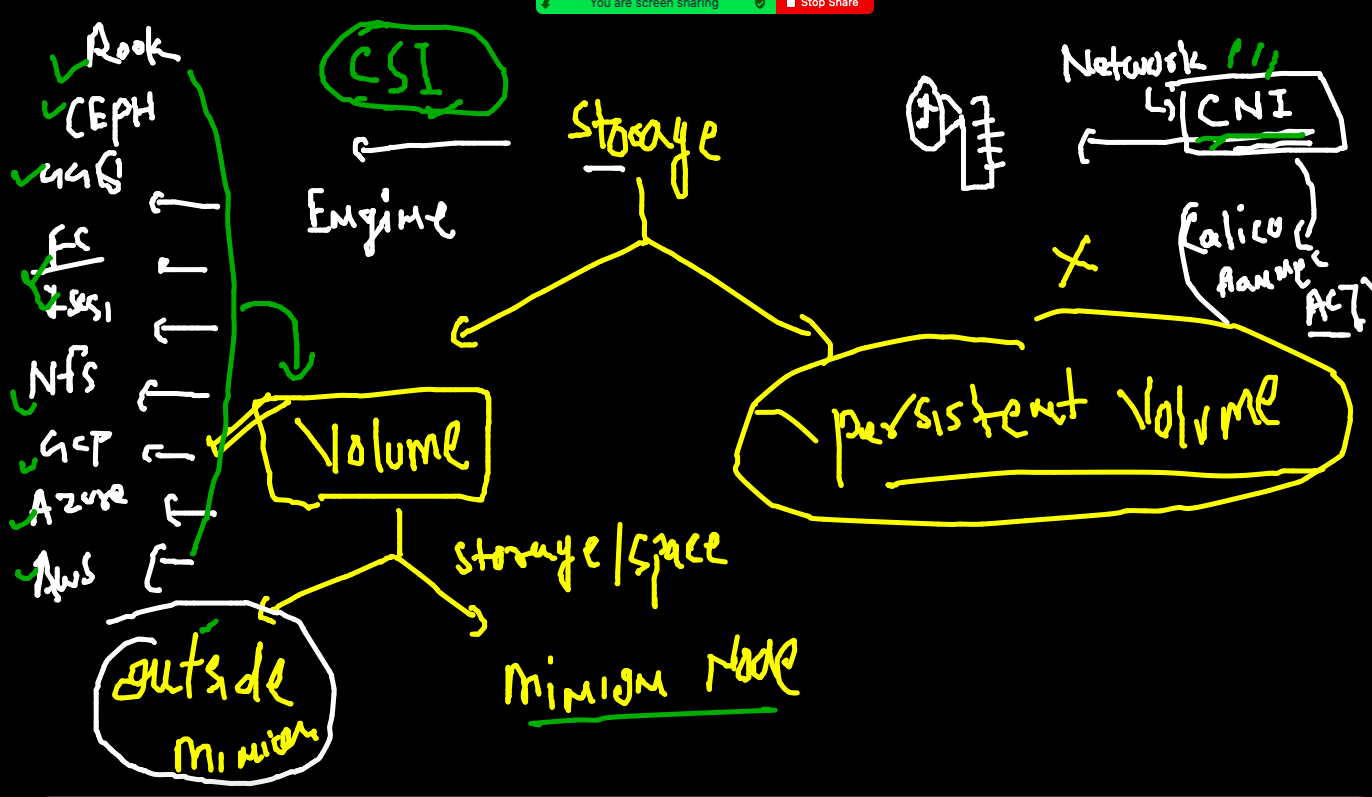 You are screen sharing
Stop Share
Rook
CEPH
FC
Nfs
GCP
Azure
Aws
CSI
Storage
Engine
Network
CNI
Calico
Volume
Persistent Volume
Storage/Space
outside
Minion
Minion Node